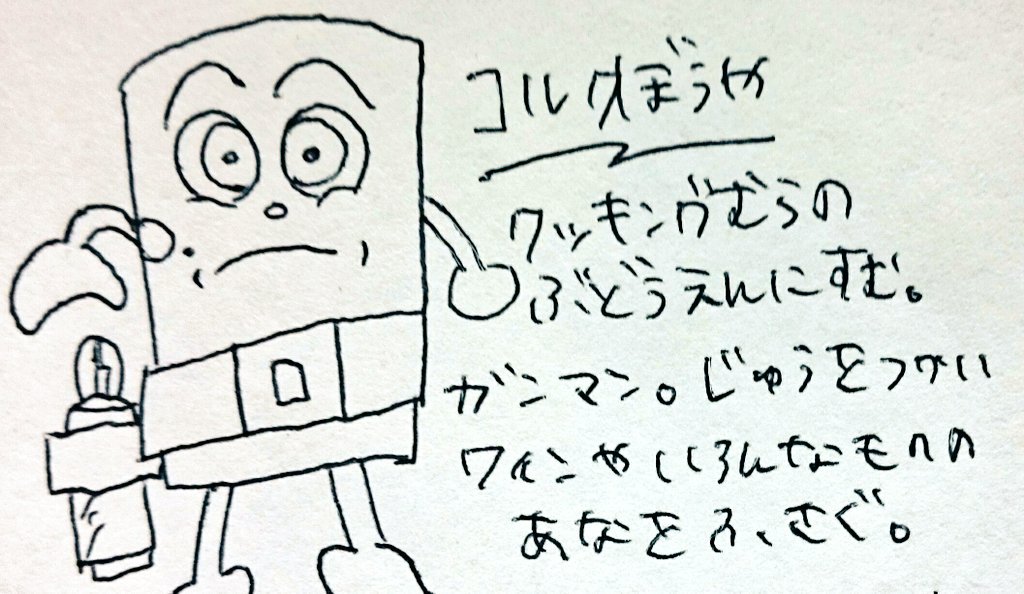 コルクぼうや
クッキングむらの
ぶどうえんにすむ。
ガンマン。じゅうをつかい
ワインやいろんなものの
あなをふさぐ。